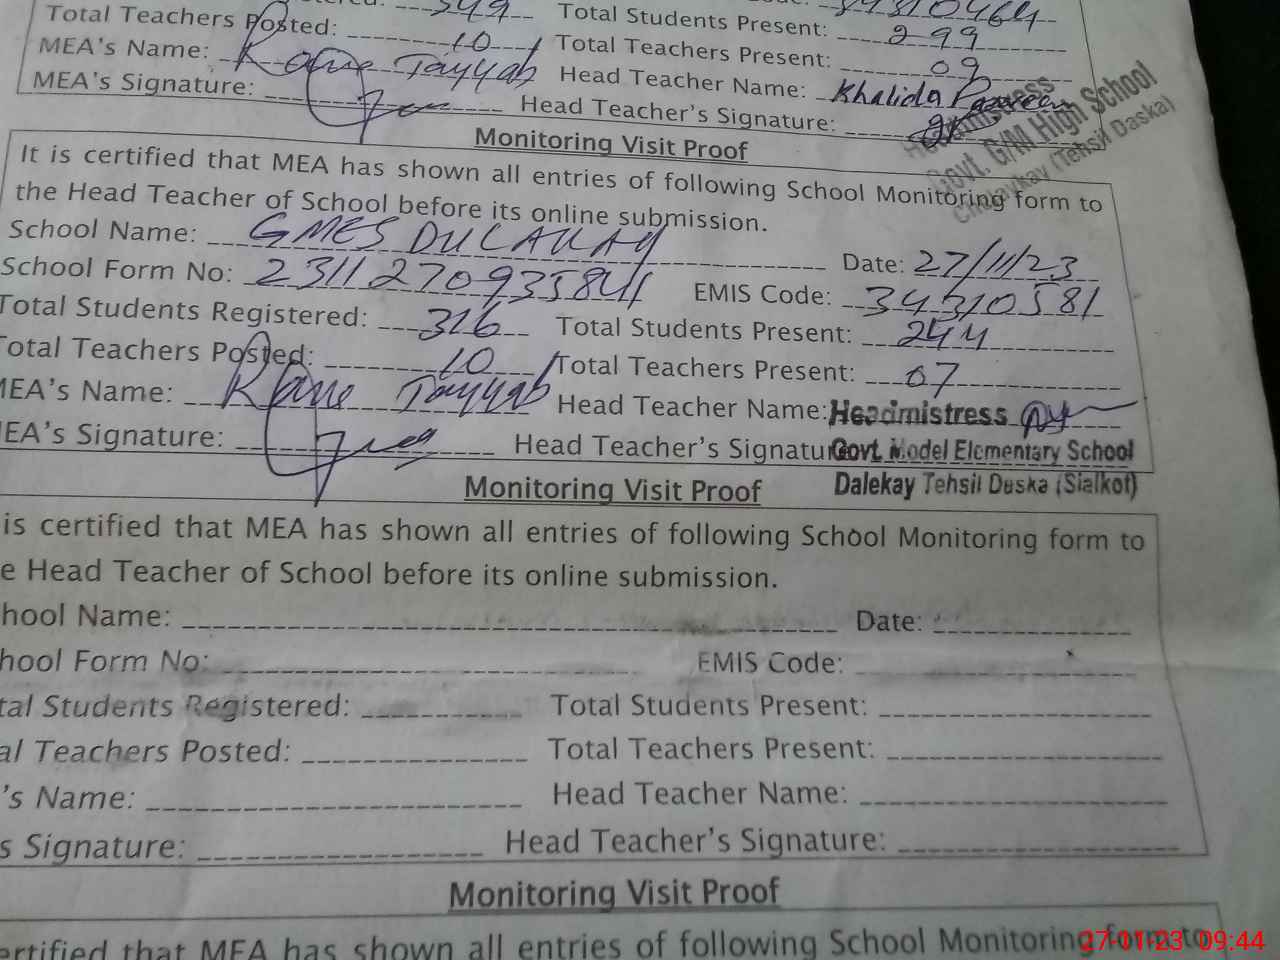 349 Total Students Present: 299
Total Teachers Posted: 10 Total Teachers Present: 09
MEA's Name: Tayyab Head Teacher Name: Khalida Parveen
MEA's Signature: Head Teacher's Signature:
Headmistress
Govt. G/M High School
(Tehsil Daska)
Monitoring Visit Proof
It is certified that MEA has shown all entries of following School Monitoring form to
the Head Teacher of School before its online submission.
School Name: GMES Date: 27/11/23
School Form No: EMIS Code: 34310581
Total Students Registered: 316 Total Students Present: 244
Total Teachers Posted: 10 Total Teachers Present: 07
MEA's Name: Tayyab Head Teacher Name: Headmistress
EA's Signature: Head Teacher's Signature Govt. Model Elementary School
Dalekay Tehsil Daska (Sialkot)
Monitoring Visit Proof
is certified that MEA has shown all entries of following School Monitoring form to
e Head Teacher of School before its online submission.
hool Name: Date:
hool Form No: EMIS Code:
tal Students Registered: Total Students Present:
al Teachers Posted: Total Teachers Present:
's Name: Head Teacher Name:
s Signature: Head Teacher's Signature:
Monitoring Visit Proof
ertified that MEA has shown all entries of following School Monitoring form to
27-01-23 09:44